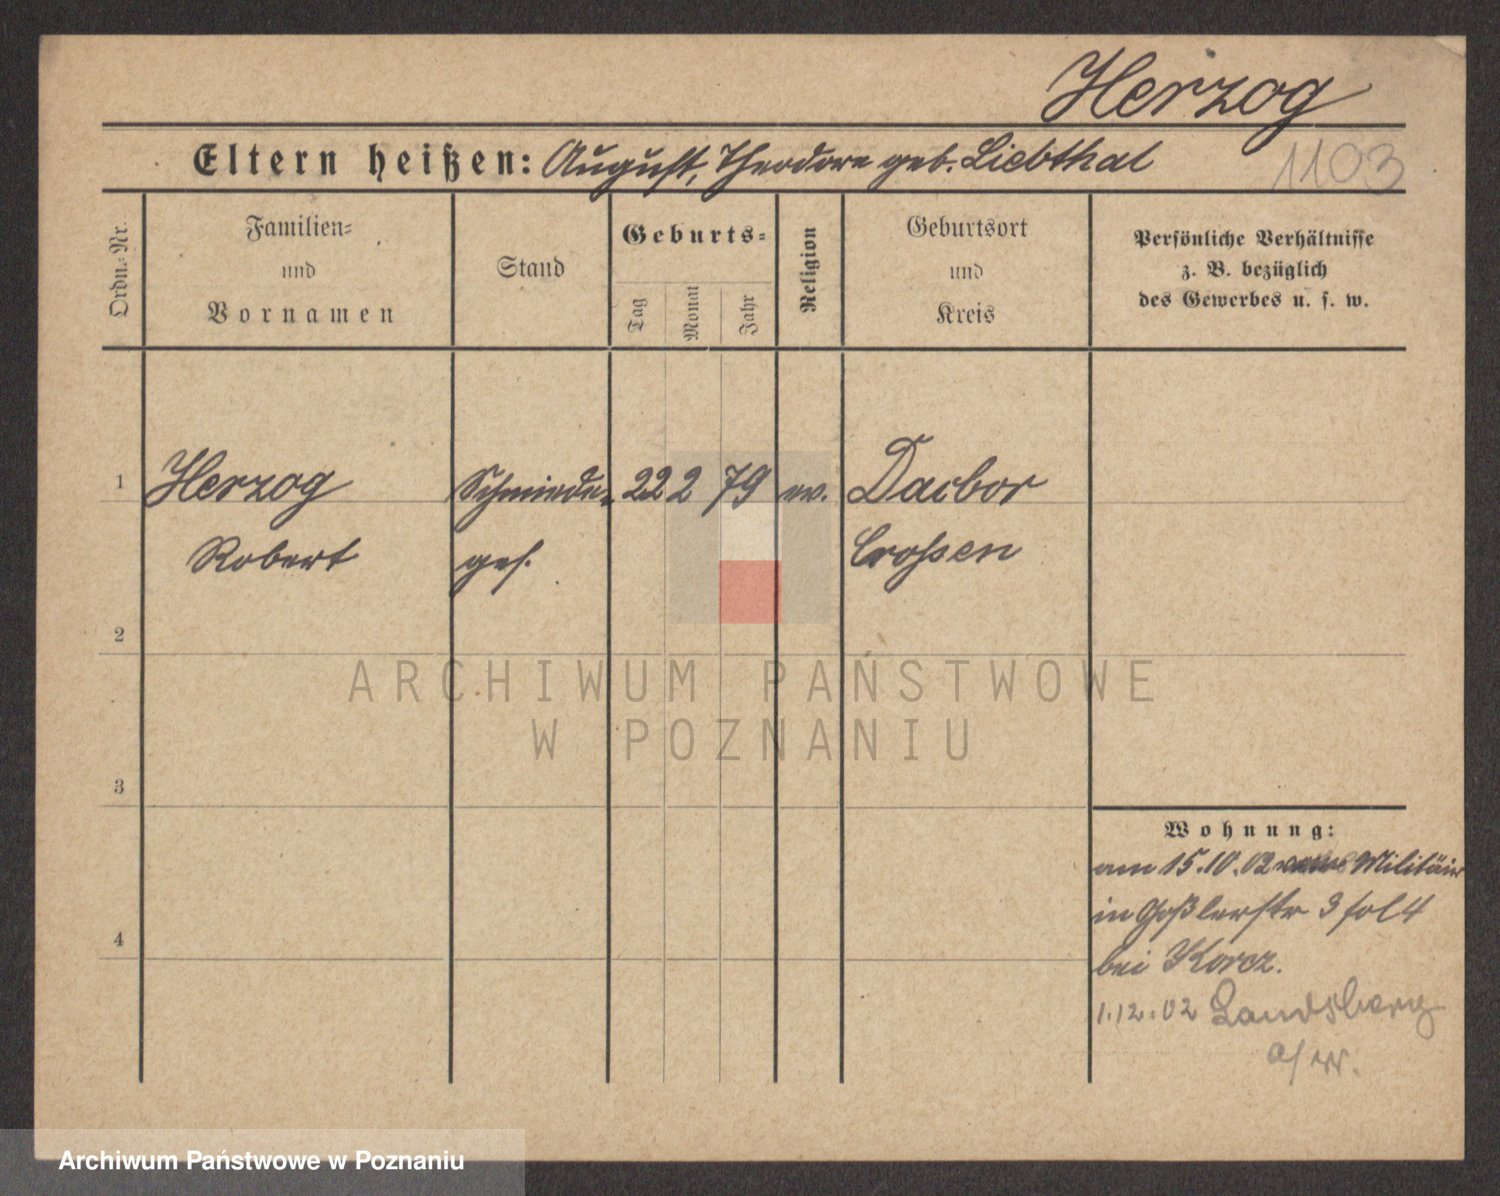 Herzog
Eltern heißen: August, Theodore geb. Liebthal
1103
Ordn.-Nr.
Familien-
und
Vornamen
Stand
Geburts-
Tag
Monat
Jahr
Religion
Geburtsort
und
Kreis
Persönliche Verhältnisse
z. B. bezüglich
des Gewerbes u. s. w.
1 Herzog Schmiede- 22 2 79 ev. Dacbor
Robert ges. Crossen
2
ARCHIWUM PAŃSTWOWE
W POZNANIU
3
Wohnung:
am 15.10.02 Militär
in Goßlerstr 3
4
bei Korcz.
1.12.02 Landsberg
a/W.
Archiwum Państwowe w Poznaniu